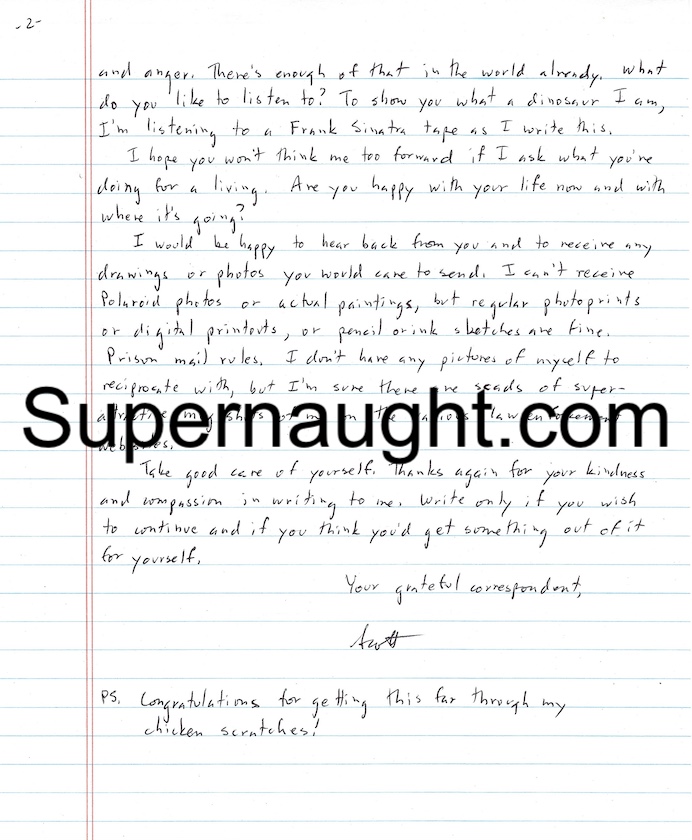 -2-
and anger. There's enough of that in the world already. What
do you like to listen to? To show you what a dinosaur I am,
I'm listening to a Frank Sinatra tape as I write this.
I hope you won't think me too forward if I ask what you're
doing for a living. Are you happy with your life now and with
where it's going?
I would be happy to hear back from you and to receive any
drawings or photos you would care to send. I can't receive
Polaroid photos or actual paintings, but regular photoprints
or digital printouts, or pencil or ink sketches are fine.
Prison mail rules. I don't have any pictures of myself to
reciprocate with, but I'm sure there are scads of super-
attractive mug shots of me on the various law enforcement
websites.
Supernaught.com
Take good care of yourself. Thanks again for your kindness
and compassion in writing to me. Write only if you wish
to continue and if you think you'd get something out of it
for yourself.
Your grateful correspondent,
Scott
PS. Congratulations for getting this far through my
chicken scratches!